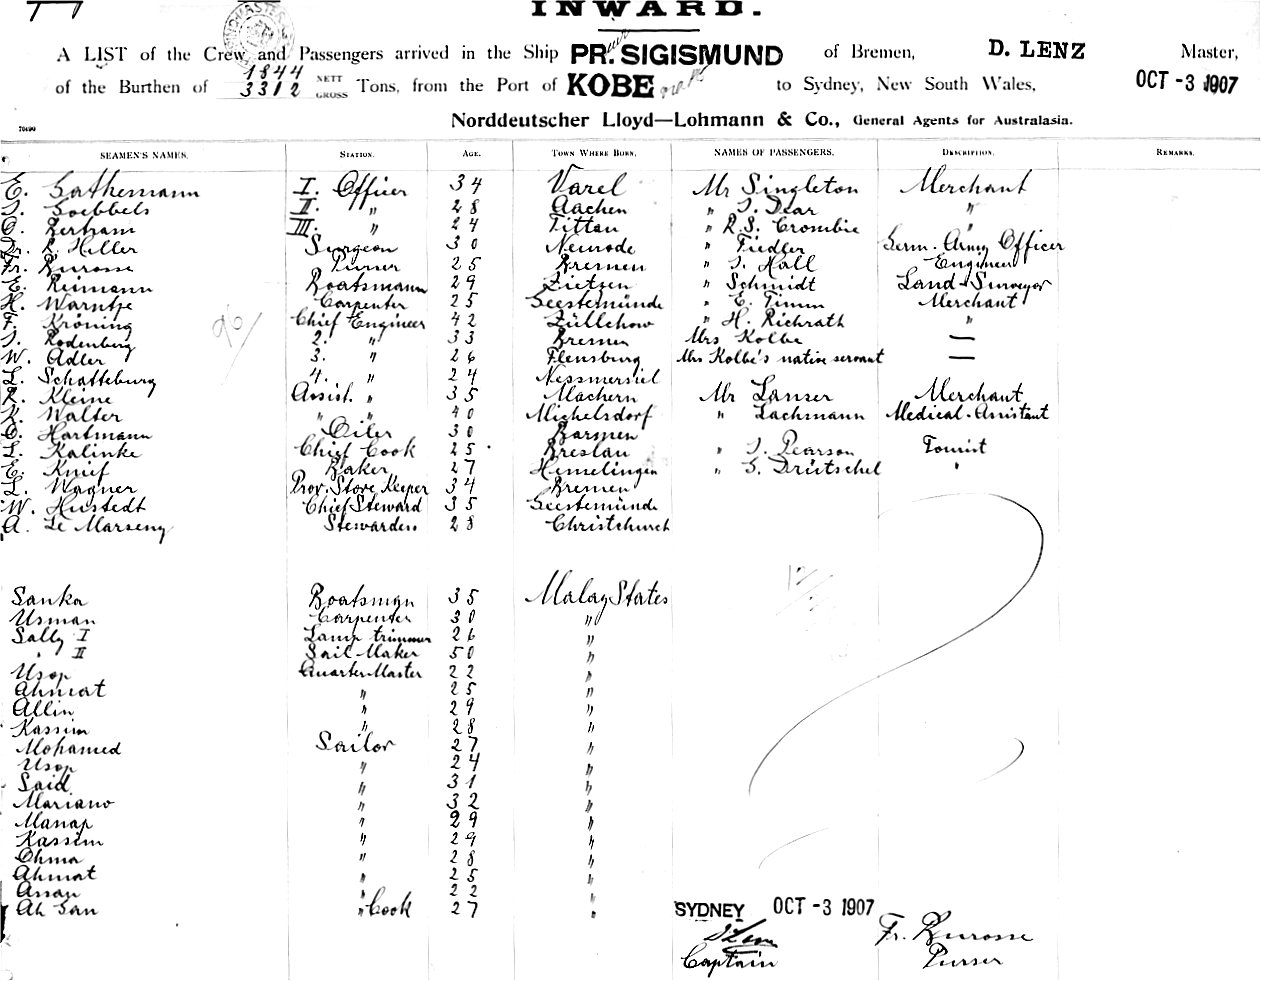 INWARD.
A LIST of the Crew and Passengers arrived in the Ship PR. SIGISMUND of Bremen, D. LENZ Master,
of the Burthen of 1844 3312 NETT GROSS Tons, from the Port of KOBE to Sydney, New South Wales, OCT -3 1907
Norddeutscher Lloyd—Lohmann & Co., General Agents for Australasia.
70490
SEAMEN'S NAMES. STATION. AGE. TOWN WHERE BORN. NAMES OF PASSENGERS. DESCRIPTION. REMARKS.
E. Gathemann I. Officer 34 Varel Mr Singleton Merchant
J. Goebbels II. " 28 Aachen " J. Dear "
O. Bertram III. " 24 Zittau " R.S. Crombie
Dr. R. Hiller Surgeon 30 Neurode " Fiedler Germ. Army Officer
Fr. Burosse Purser 25 Bremen " J. Hall Engineer
E. Reimann Boatsmann 29 Zietzen " Schmidt Land Surveyor
H. Warntje Carpenter 25 Geestemünde " E. Timm Merchant
F. Kröning Chief Engineer 42 Züllchow " H. Richrath "
J. Rodenburg 2. " 33 Bremen Mrs Kolbe —
W. Adler 3. " 26 Flensburg Mrs Kolbe's native servant —
L. Schatteburg 4. " 24 Nessmersiel
R. Kleine Assist. " 35 Machern Mr Lanser Merchant
K. Walter " " 40 Michelsdorf " Lachmann Medical-Assistant
O. Hartmann Oiler 30 Barmen
L. Kalinke Chief Cook 25 Breslau " J. Pearson Tourist
E. Knief Baker 27 Hemelingen " G. Drütschel "
L. Wagner Prov. Store Keeper 34 Bremen
W. Hustedt Chief Steward 35 Geestemünde
A. Le Marseny Stewardess 28 Christchurch
Sanka Boatsman 35 Malay States
Usman Carpenter 30 "
Sally I Lamp trimmer 26 "
" II Sail Maker 50 "
Usop Quarter Master 22 "
Ahmat " 25 "
Allin " 29 "
Kassim " 28 "
Mohamed Sailor 27 "
Usop " 24 "
Said " 31 "
Mariano " 32 "
Manap " 29 "
Kassim " 29 "
Ohma " 28 "
Ahmat " 25 "
Assan " 22 "
Ah San " Cook 27 "
SYDNEY OCT -3 1907
Fr. Burosse
Captain Purser